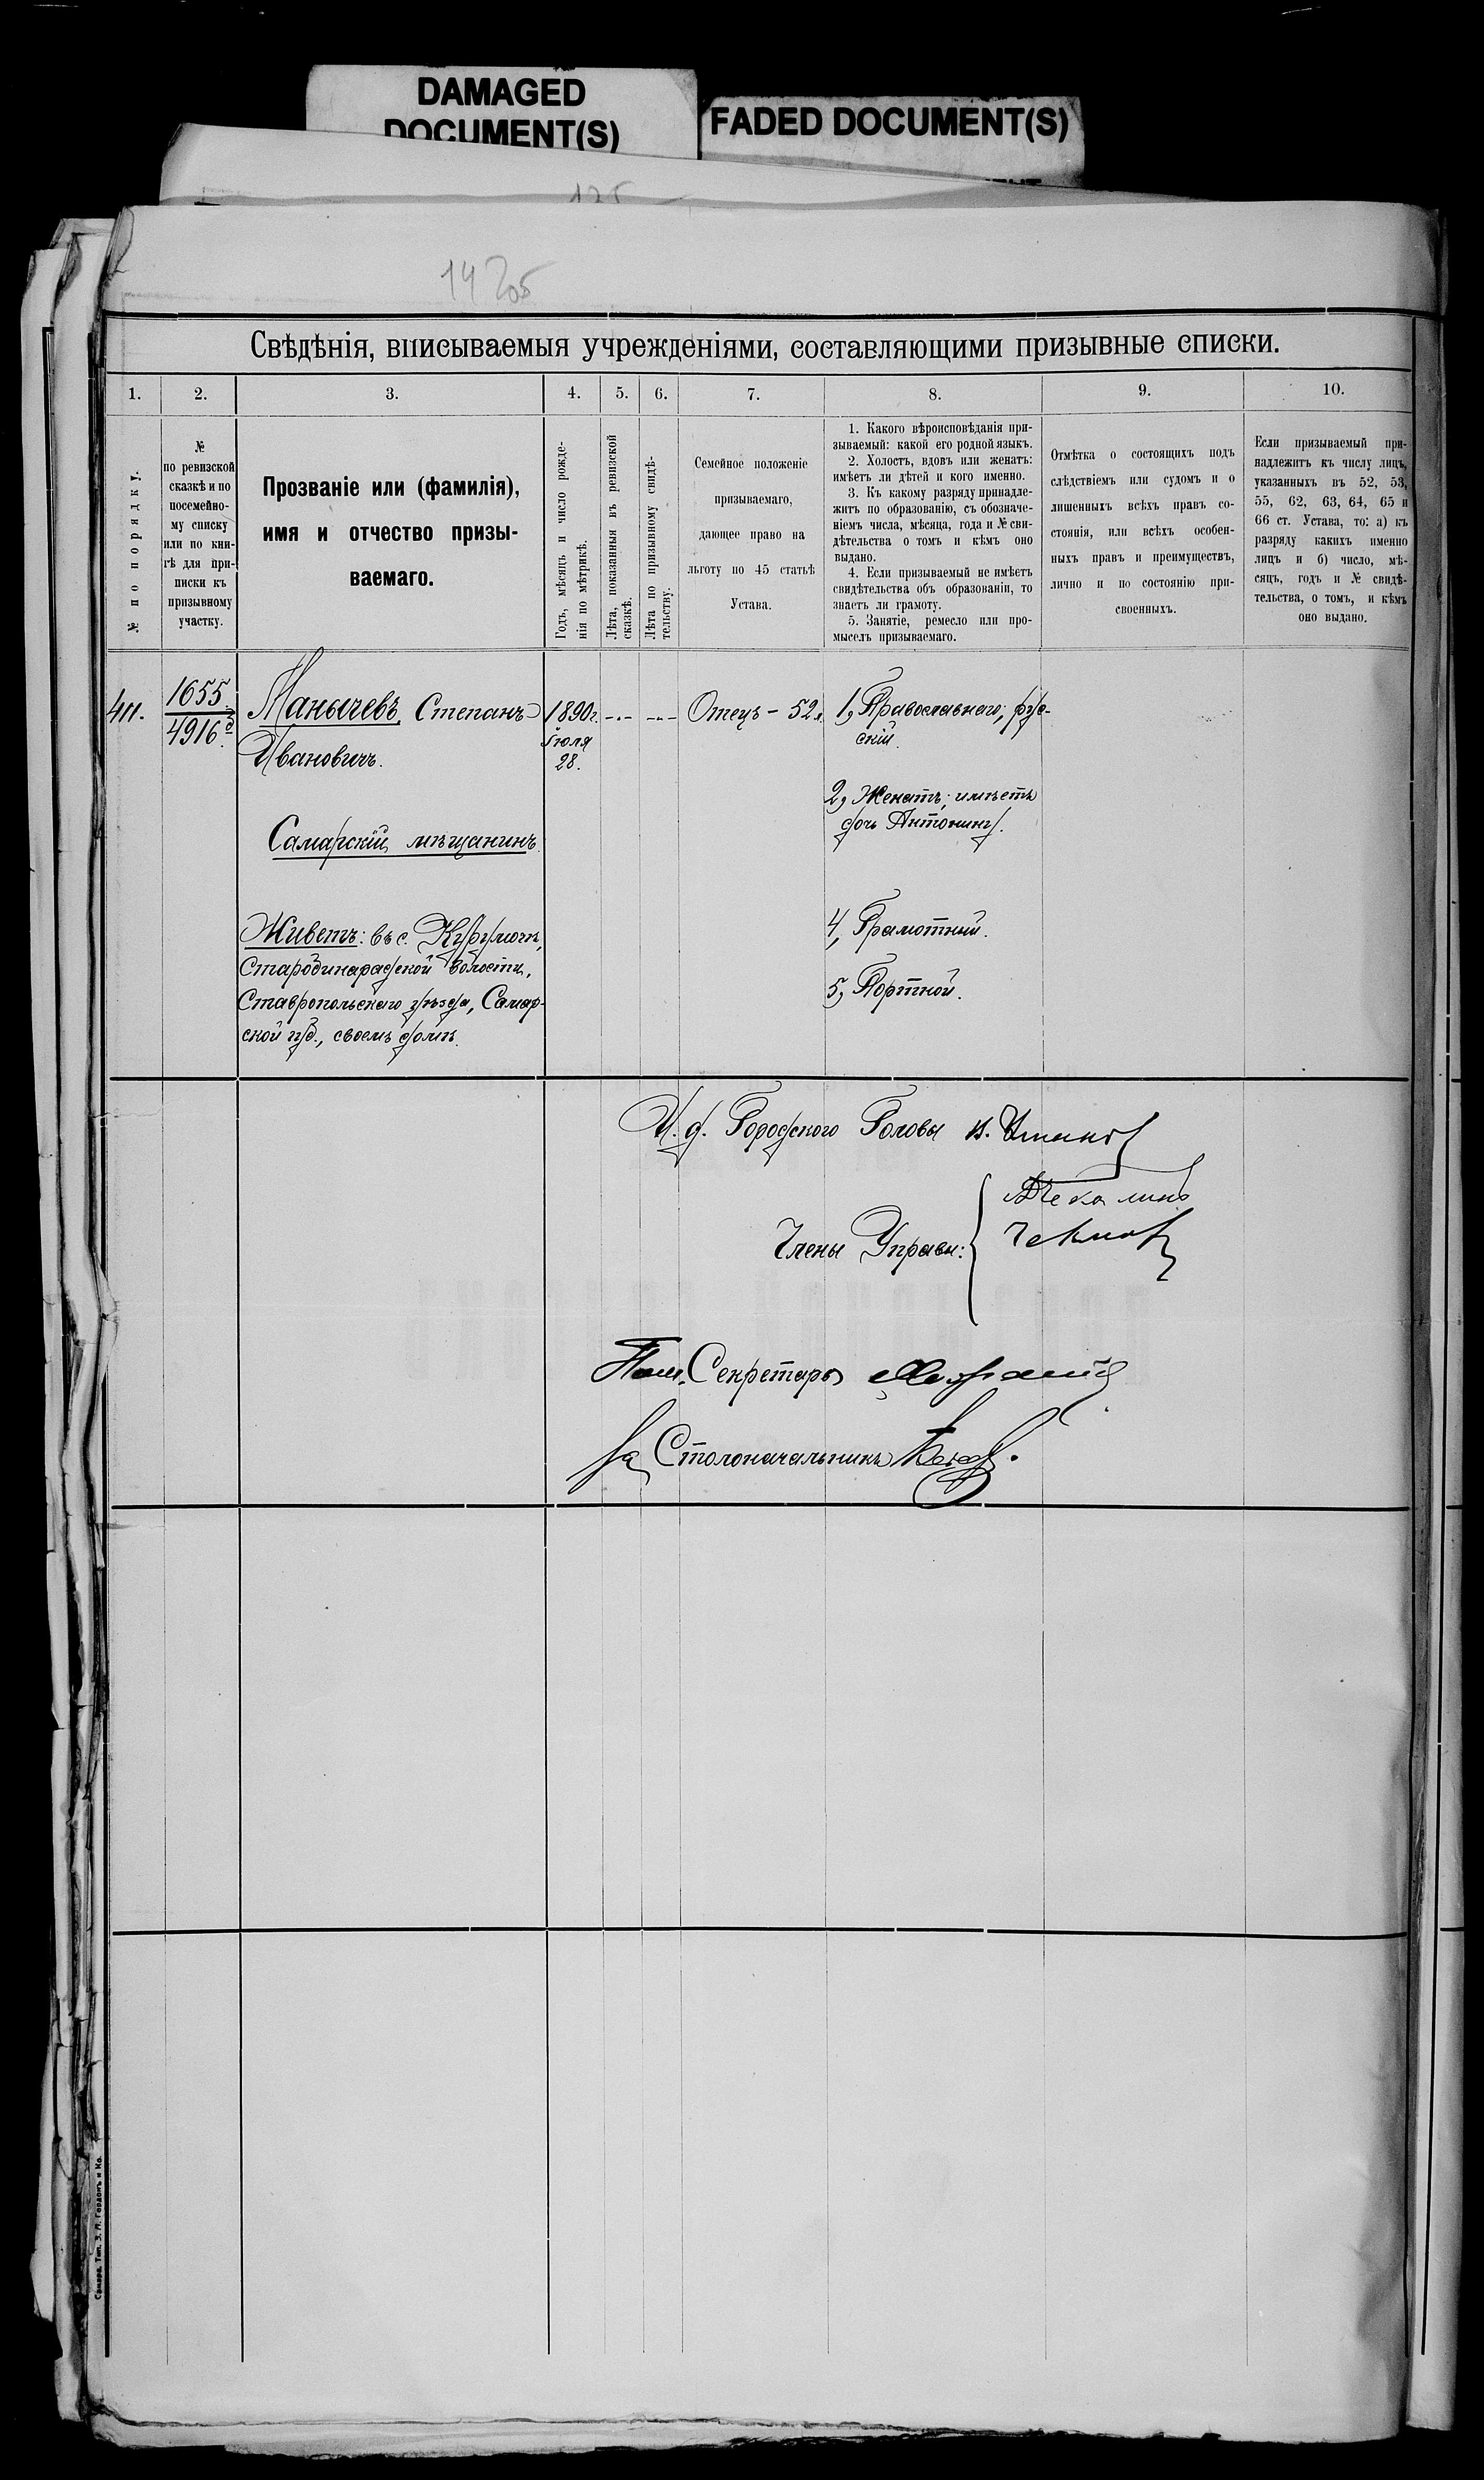 DAMAGED
DOCUMENT(S)
FADED DOCUMENT(S)
125
Свѣдѣнія, вписываемыя учрежденіями, составляющими призывные списки.
1.
2.
3.
4.
5.
6.
7.
8.
9.
10.
№ по порядку.
№
по ревизской
сказкѣ и по
посемейно-
му списку
или по кни-
гѣ для при-
писки къ
призывному
участку.
Прозваніе или (фамилія),
имя и отчество призы-
ваемаго.
Годъ, мѣсяцъ и число рожде-
нія по мѣтрикѣ.
Лѣта, показанныя въ ревизской
сказкѣ.
Лѣта по призывному свидѣ-
тельству.
Семейное положеніе
призываемаго,
дающее право на
льготу по 45 статьѣ
Устава.
1. Какого вѣроисповѣданія при-
зываемый: какой его родной языкъ.
2. Холостъ, вдовъ или женатъ:
имѣетъ ли дѣтей и кого именно.
3. Къ какому разряду принадле-
житъ по образованію, съ обозначе-
ніемъ числа, мѣсяца, года и № сви-
дѣтельства о томъ и кѣмъ оно
выдано.
4. Если призываемый не имѣетъ
свидѣтельства объ образованіи, то
знаетъ ли грамоту.
5. Занятіе, ремесло или про-
мыселъ призываемаго.
Отмѣтка о состоящихъ подъ
слѣдствіемъ или судомъ и о
лишенныхъ всѣхъ правъ со-
стоянія, или всѣхъ особен-
ныхъ правъ и преимуществъ,
лично и по состоянію при-
своенныхъ.
Если призываемый при-
надлежитъ къ числу лицъ,
указанныхъ въ 52, 53,
55, 62, 63, 64, 65 и
66 ст. Устава, то: а) къ
разряду какихъ именно
лицъ и б) число, мѣ-
сяцъ, годъ и № свидѣ-
тельства, о томъ, и кѣмъ
оно выдано.
411.
1655
4916
Манычевъ, Степанъ
Ивановичъ.
Самарскій мѣщанинъ.
Живетъ: въ с.
волости,
Ставропольскаго уѣзда, Самар-
ской губ., своемъ домѣ.
1890 г.
Іюля
28.
Отецъ - 52 л.
1, Православнаго; рус-
скій.
2, Женатъ; имѣетъ
дочь Антонину.
4, Грамотный.
5, Портной.
И. д. Городского Головы
Члены Управы:
Пом. Секретаря
За Столоначальника
Самара. Тип. З. Л. Гордонъ и Ко.